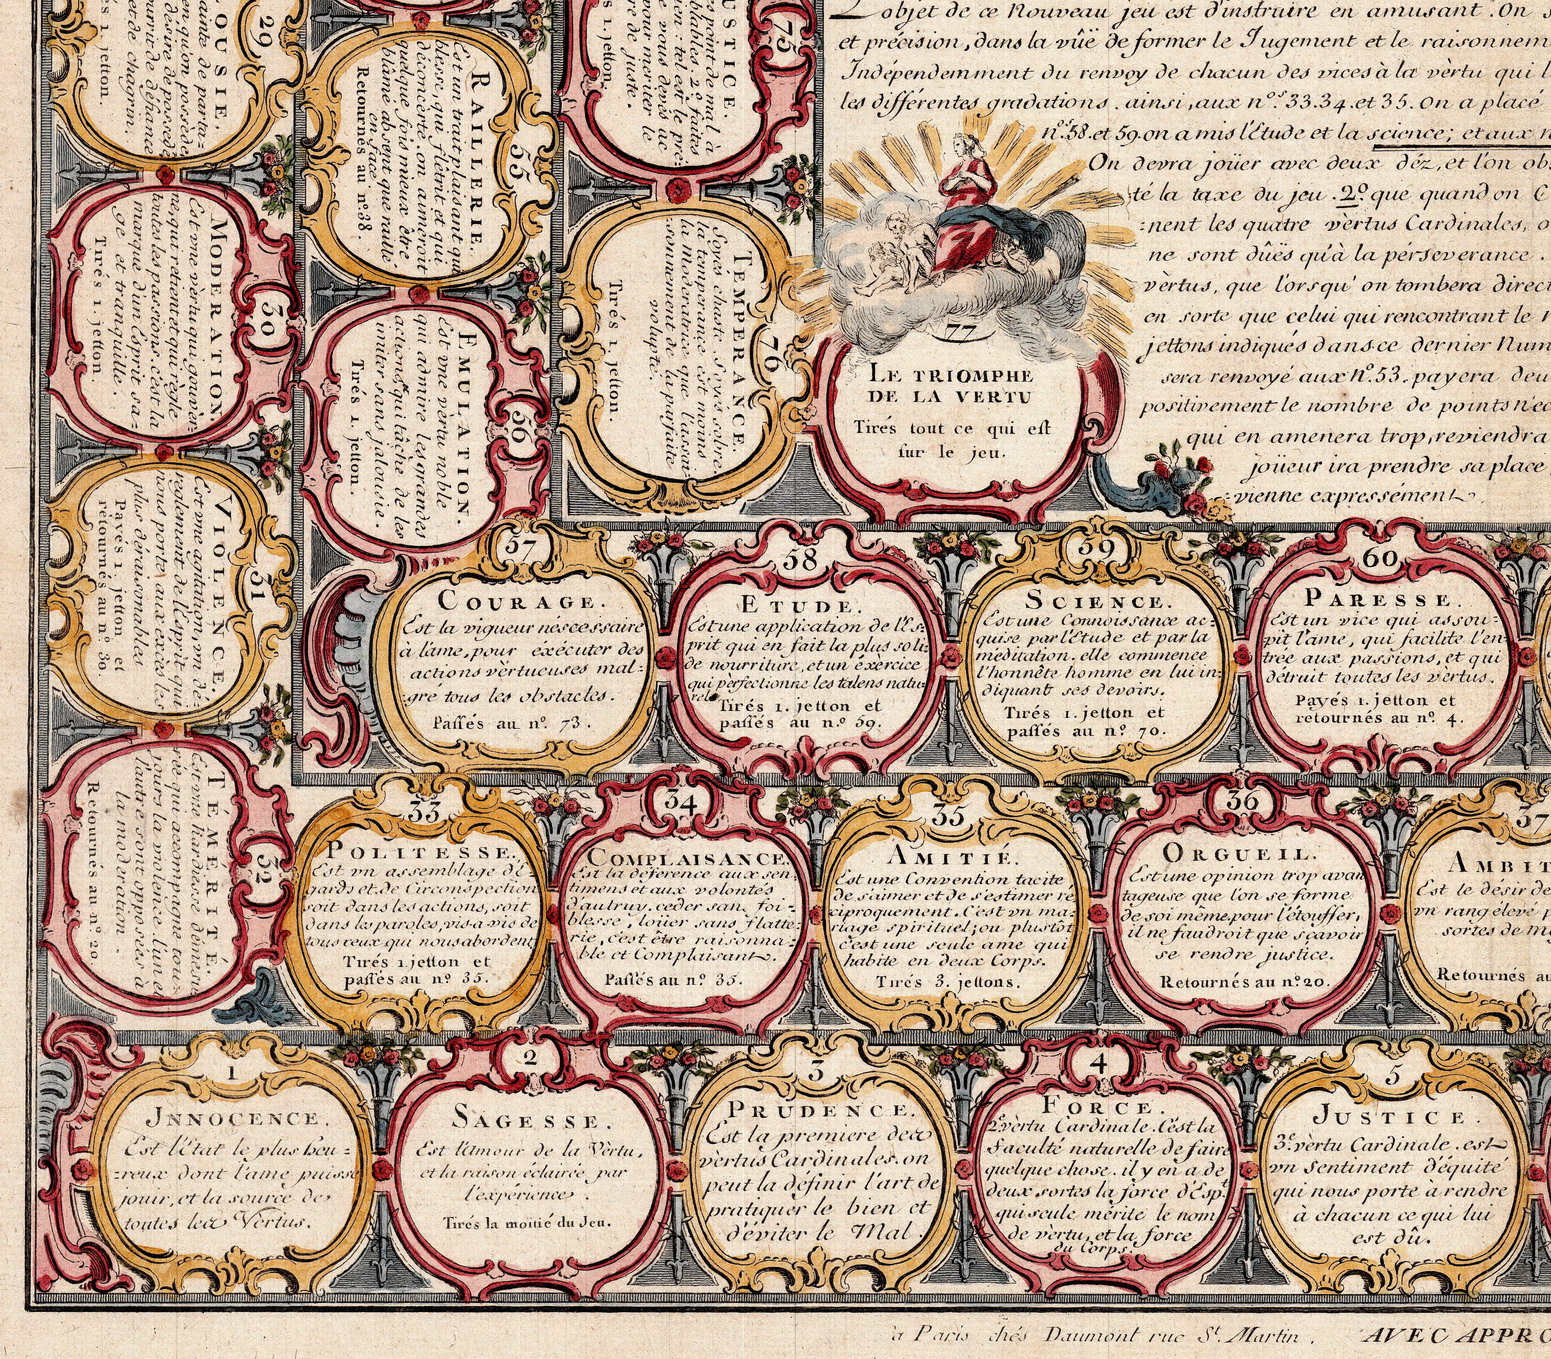 L'objet de ce Nouveau jeu est d'instruire en amusant. On
et précision, dans la vûë de former le Jugement et le raisonnem
Indépendemment du renvoy de chacun des vices à la vèrtu qui l
les différentes gradations. ainsi, aux nos. 33.34. et 35. on a placé
nos. 58. et 59. on a mis l'Etude et la science; et aux n
On devra joüer avec deux déz, et l'on ob
té la taxe du jeu. 2o. que quand on
nent les quatre vèrtus Cardinales, o
ne sont dûës qu'à la pérseverance.
vèrtus, que lorsqu'on tombera direc
en sorte que celui qui rencontrant le
jettons indiqués dans ce dernier Num
sera renvoyé aux No. 53. payera deu
positivement le nombre de points néc
qui en amenera trop, reviendra
joüeur ira prendre sa place
vienne expressément.
77
LE TRIOMPHE
DE LA VERTU
Tirés tout ce qui est
sur le jeu.
29
OUSIE.
et de chagrin.
1. jetton.
30
MODERATION.
Est une vèrtu qui gouvèr=
toutes les passions. c'est la
marque d'un Esprit sa=
ge et tranquille.
Tirés 1. jetton.
31
VIOLENCE.
Est une agitation, un dé=
réglement de l'Esprit qui
nous porte aux excès les
plus déraisonnables
Payés 1. jetton et
retournés au no. 30.
32
TEMERITÉ.
Est une hardiesse démesu
rée qui accompagne tou=
jours la violence. l'un et
l'autre sont opposées à
la moderation.
Retournés au no. 20.
55
RAILLERIE.
Est un trait plaisant qui
blesse, qui flétrit et qui
déconcerte, on aimeroit
quelque fois mieux être
blâmé absent que raillé
en face.
Retournés au no. 38
56
EMULATION.
Est une vèrtu noble
qui admire les grandes
actions, qui tâche de les
imiter sans jalousie.
Tirés 1. jetton.
75
USTICE.
re de juste.
1. jetton.
76
TEMPERANCE.
Soyés chaste Soyés sobre
la temperance est moins
la Modratrice que l'assai=
sonnement de la parfaite
volupté.
Tirés 1. jetton.
57
COURAGE.
Est la vigueur néscessaire
à lame, pour exécuter des
actions vèrtueuses mal=
gré tous les obstacles.
Passés au no. 73.
58
ETUDE.
Est une application de l'Es=
prit qui en fait la plus soli=
de nourriture, et un éxercice
qui pèrfectionne les talens natu
rels.
Tirés 1. jetton et
passés au n.o 59.
59
SCIENCE.
Est une Connoissance ac=
quise par l'Etude et par la
méditation. elle commence
l'honnête homme en lui in=
diquant ses devoirs.
Tirés 1. jetton et
passés au no. 70.
60
PARESSE.
Est un vice qui assou=
pit l'ame, qui facilite l'en=
trée aux passions, et qui
détruit toutes les vertus.
Payés 1. jetton et
retournés au no. 4.
33
POLITESSE.
Est un assemblage dé=
gards et de Circonspection
soit dans les actions, soit
dans les paroles, vis a vis de
tous ceux qui nous abordent
Tirés 1 jetton et
passés au no. 35.
34
COMPLAISANCE.
Est la déférence aux sen=
timens et aux volontés
d'autruy. ceder san, foi=
blesse; loüer sans flatte=
rie, c'est être raisonna=
ble et Complaisant.
Passés au no. 35.
35
AMITIÉ.
Est une Convention tacite
de s'aimer et de s'estimer ré
ciproquement. C'est un ma=
riage spirituel; ou plustôt
c'est une seule ame qui
habite en deux Corps.
Tirés 3. jettons.
36
ORGUEIL.
Est une opinion trop avan
tageuse que l'on se forme
de soi même. pour l'étouffer,
il ne faudroit que sçavoir
se rendre justice.
Retournés au no. 20.
37
AMBIT
Est le désir de
un rang élevé p
sortes de m
Retournés au
1
JNNOCENCE.
Est l'Etat le plus heu=
reux dont l'ame puisse
jouir, et la source de
toutes les Vertus.
2
SAGESSE.
Est l'Amour de la Vèrtu,
et la raison éclairée par
l'expérience.
Tirés la moitié du Jeu.
3
PRUDENCE.
Est la premiere des
vèrtus Cardinales. on
peut la définir l'art de
pratiquer le bien et
d'éviter le Mal.
4
FORCE.
2e. vèrtu Cardinale. C'est la
faculté naturelle de faire
quelque chose. il y en a de
deux sortes la force d'Espt.
qui seule mérite le nom
de vèrtu, et la force
du Corps.
5
JUSTICE.
3e. vèrtu Cardinale. est
un Sentiment d'équité
qui nous porte à rendre
à chacun ce qui lui
est dû.
à Paris chés Daumont rue St. Martin.
AVEC APPRO